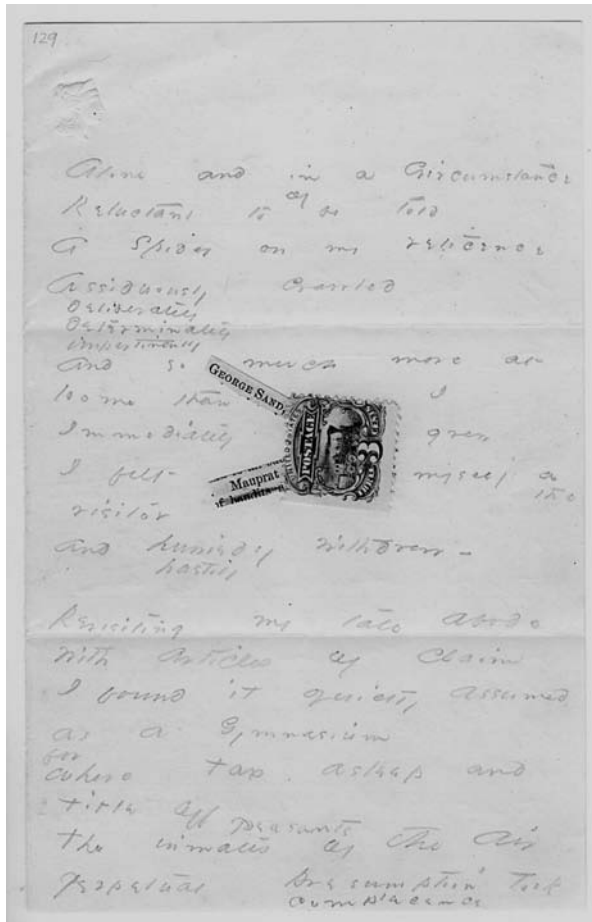 129
Alone and in a Circumstance
Reluctant to be told
of
A Spider on my reticence
Assiduously crawled
deliberately
determinately
impertinently
And so much more at
home than I
Immediately grew
I felt myself a
the
visitor
And hurriedly withdrew -
hastily
Revisiting my late abode
with articles of claim
I found it quietly assumed
as a Gymnasium
for
where tax asleep and
title off
peasants
The inmates of the Air
Perpetual presumption took
complacence
GEORGE SAND,
Mauprat
POSTAGE
UNITED STATES
3
THREE CENTS